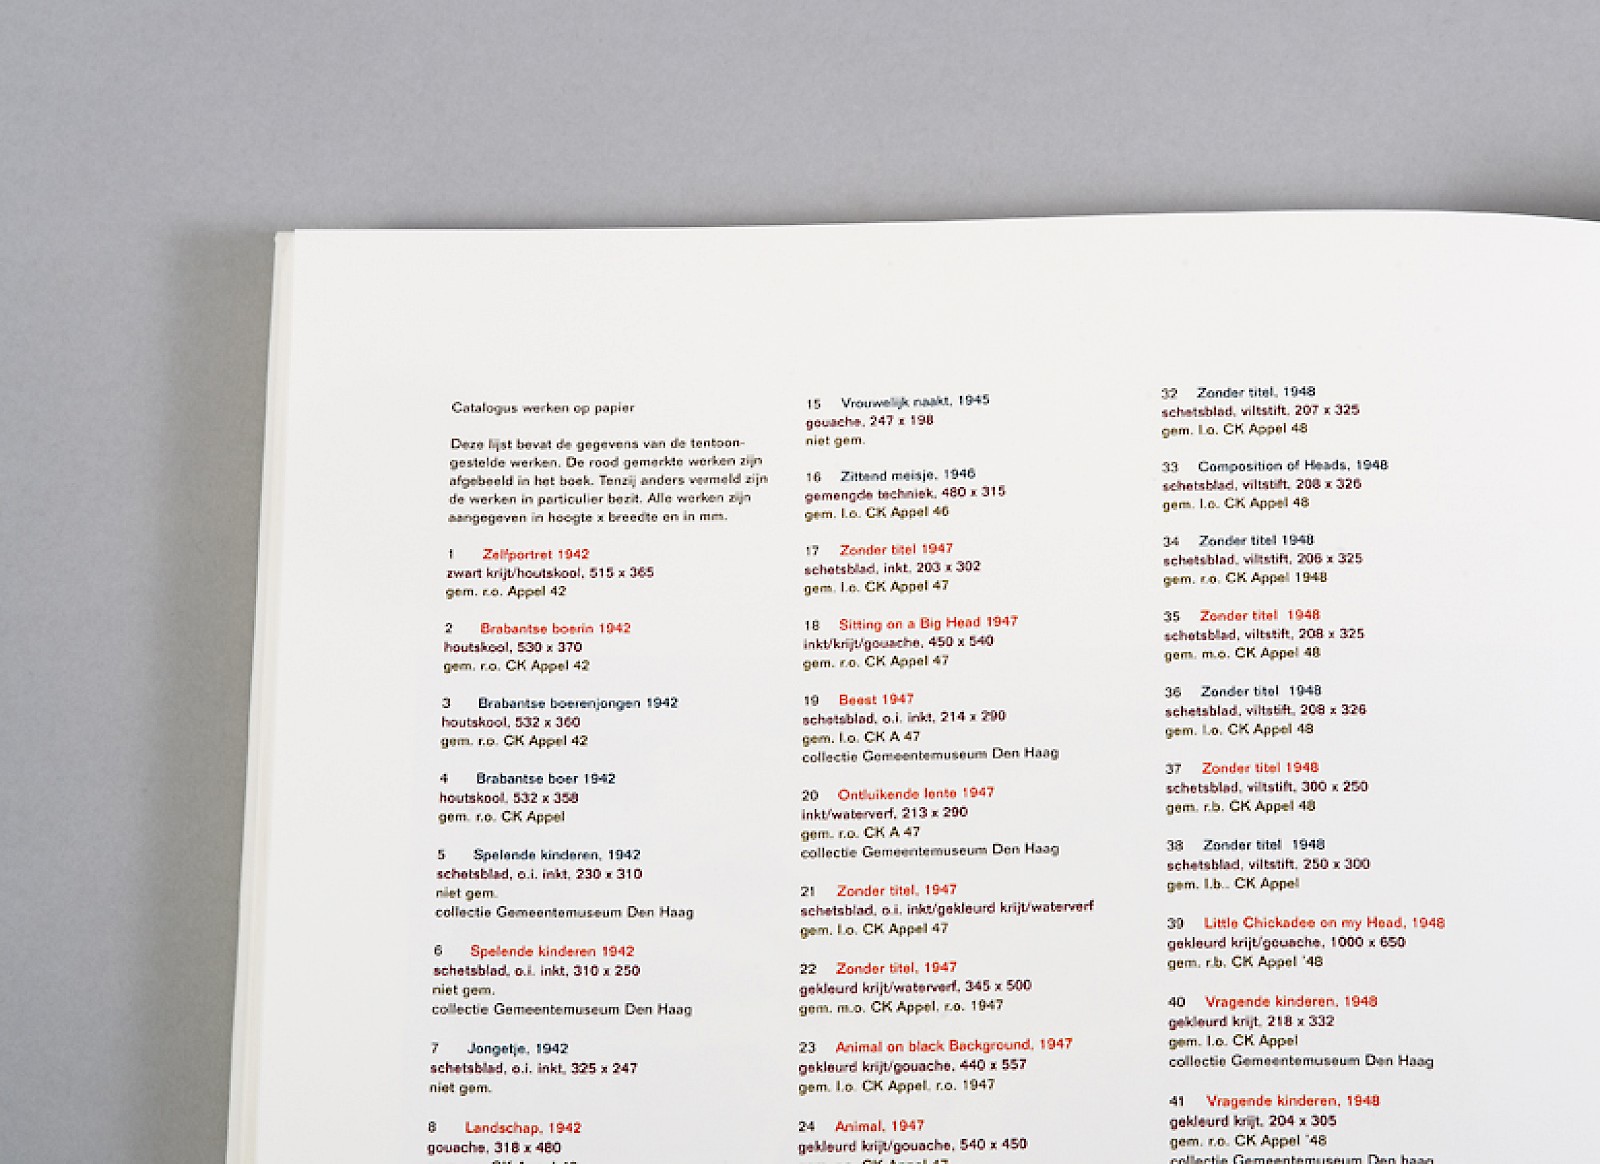 Catalogus werken op papier
Deze lijst bevat de gegevens van de tentoon-
gestelde werken. De rood gemerkte werken zijn
afgebeeld in het boek. Tenzij anders vermeld zijn
de werken in particulier bezit. Alle werken zijn
aangegeven in hoogte x breedte en in mm.
1 Zelfportret 1942
zwart krijt/houtskool, 515 x 365
gem. r.o. Appel 42
2 Brabantse boerin 1942
houtskool, 530 x 370
gem. r.o. CK Appel 42
3 Brabantse boerenjongen 1942
houtskool, 532 x 360
gem. r.o. CK Appel 42
4 Brabantse boer 1942
houtskool, 532 x 358
gem. r.o. CK Appel
5 Spelende kinderen, 1942
schetsblad, o.i. inkt, 230 x 310
niet gem.
collectie Gemeentemuseum Den Haag
6 Spelende kinderen 1942
schetsblad, o.i. inkt, 310 x 250
niet gem.
collectie Gemeentemuseum Den Haag
7 Jongetje, 1942
schetsblad, o.i. inkt, 325 x 247
niet gem.
8 Landschap, 1942
gouache, 318 x 480
15 Vrouwelijk naakt, 1945
gouache, 247 x 198
niet gem.
16 Zittend meisje, 1946
gemengde techniek, 480 x 315
gem. l.o. CK Appel 46
17 Zonder titel 1947
schetsblad, inkt, 203 x 302
gem. l.o. CK Appel 47
18 Sitting on a Big Head 1947
inkt/krijt/gouache, 450 x 540
gem. r.o. CK Appel 47
19 Beest 1947
schetsblad, o.i. inkt, 214 x 290
gem. l.o. CK A 47
collectie Gemeentemuseum Den Haag
20 Ontluikende lente 1947
inkt/waterverf, 213 x 290
gem. r.o. CK A 47
collectie Gemeentemuseum Den Haag
21 Zonder titel, 1947
schetsblad, o.i. inkt/gekleurd krijt/waterverf
gem. l.o. CK Appel 47
22 Zonder titel, 1947
gekleurd krijt/waterverf, 345 x 500
gem. m.o. CK Appel, r.o. 1947
23 Animal on black Background, 1947
gekleurd krijt/gouache, 440 x 557
gem. l.o. CK Appel, r.o. 1947
24 Animal, 1947
gekleurd krijt/gouache, 540 x 450
32 Zonder titel, 1948
schetsblad, viltstift, 207 x 325
gem. l.o. CK Appel 48
33 Composition of Heads, 1948
schetsblad, viltstift, 208 x 326
gem. l.o. CK Appel 48
34 Zonder titel 1948
schetsblad, viltstift, 206 x 325
gem. r.o. CK Appel 1948
35 Zonder titel 1948
schetsblad, viltstift, 208 x 325
gem. m.o. CK Appel 48
36 Zonder titel 1948
schetsblad, viltstift, 208 x 326
gem. l.o. CK Appel 48
37 Zonder titel 1948
schetsblad, viltstift, 300 x 250
gem. r.b. CK Appel 48
38 Zonder titel 1948
schetsblad, viltstift, 250 x 300
gem. l.b.. CK Appel
39 Little Chickadee on my Head, 1948
gekleurd krijt/gouache, 1000 x 650
gem. r.b. CK Appel '48
40 Vragende kinderen, 1948
gekleurd krijt, 218 x 332
gem. l.o. CK Appel
collectie Gemeentemuseum Den Haag
41 Vragende kinderen, 1948
gekleurd krijt, 204 x 305
gem. r.o. CK Appel '48
collectie Gemeentemuseum Den haag